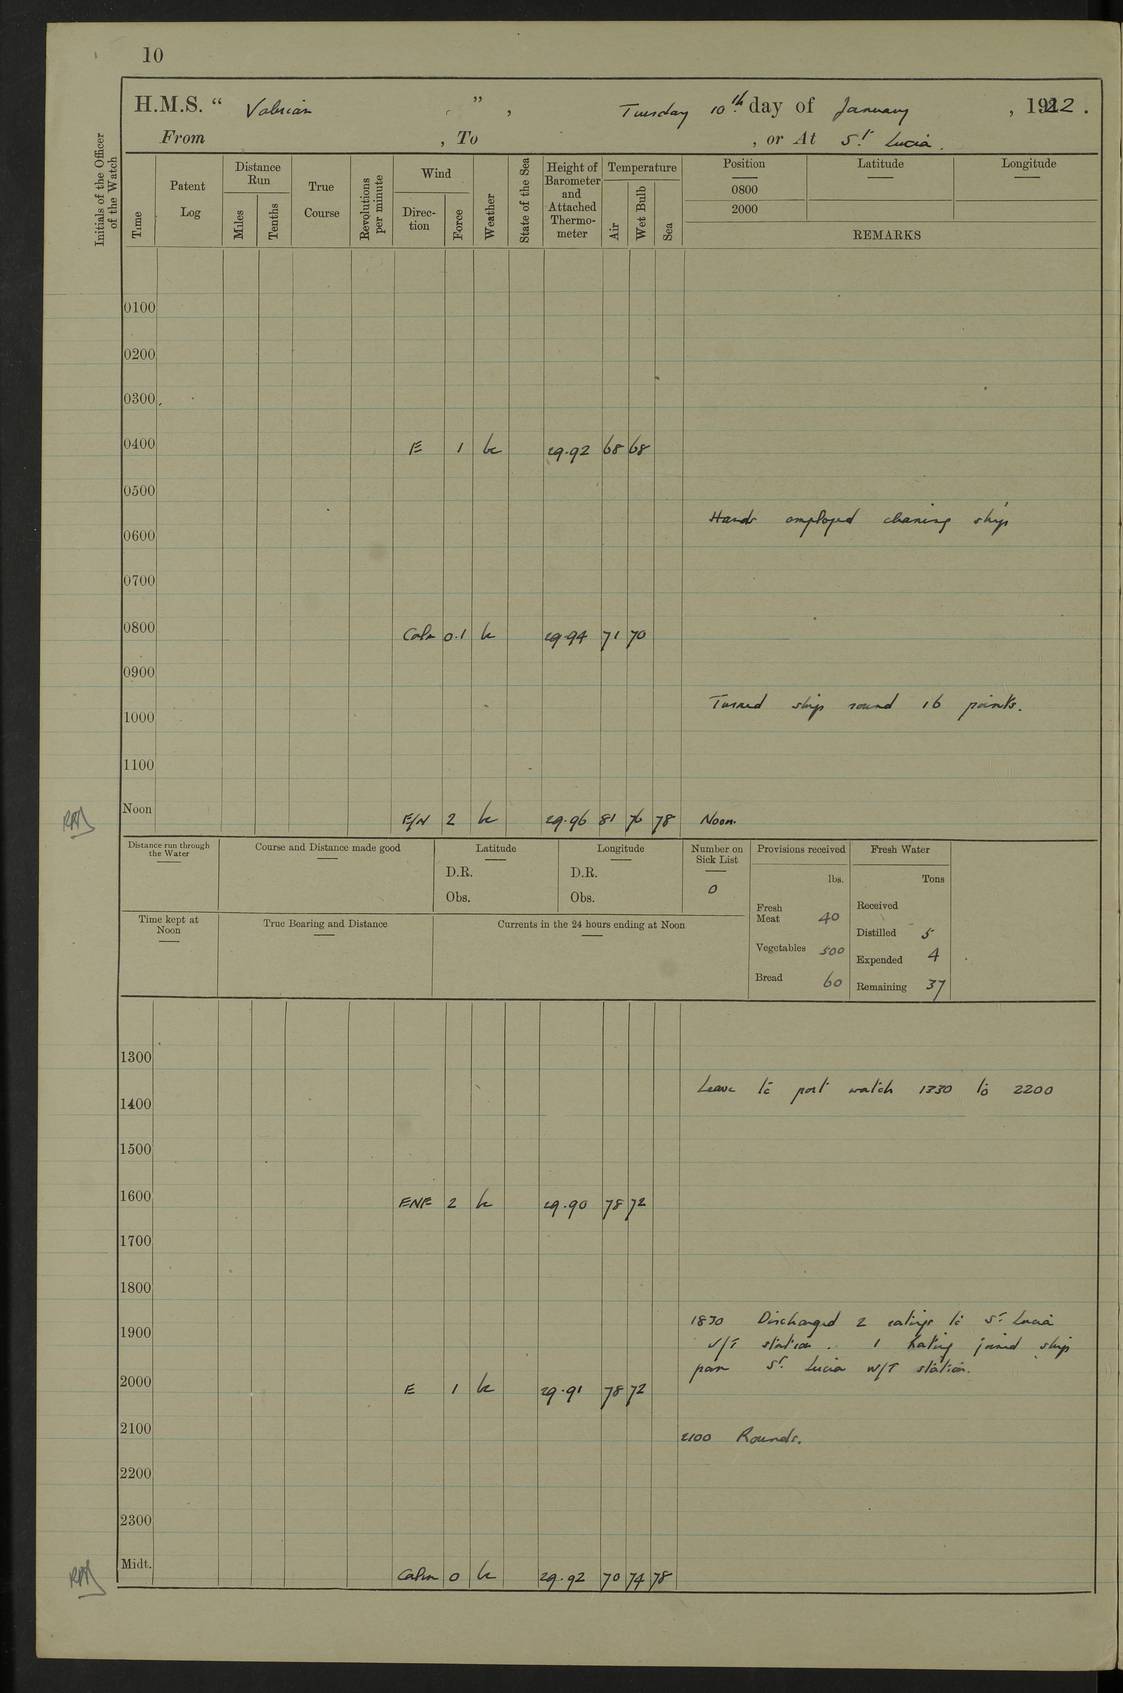 10
H.M.S. “ Valerian ” , Tuesday 10th day of January , 1922 .
From , To , or At St Lucia .
Initials of the Officer of the Watch
Time
Patent Log
Distance Run
Miles
Tenths
True Course
Revolutions per minute
Wind
Direc- tion
Force
Weather
State of the Sea
Height of Barometer and Attached Thermo- meter
Temperature
Air
Wet Bulb
Sea
Position
0800
2000
Latitude
Longitude
REMARKS
0100
0200
0300
0400 E 1 bc 29.92 68 68
0500
Hands employed cleaning ship
0600
0700
0800 Calm 0.1 bc 29.94 71 70
0900
Turned ship round 16 points.
1000
1100
Noon E/N 2 bc 29.96 81 76 78 Noon.
Distance run through the Water
Course and Distance made good
Latitude
D.R.
Obs.
Longitude
D.R.
Obs.
Number on Sick List
0
Provisions received
lbs.
Fresh Meat 40
Vegetables 500
Bread 60
Fresh Water
Tons
Received
Distilled 5
Expended 4
Remaining 37
Time kept at Noon
True Bearing and Distance
Currents in the 24 hours ending at Noon
1300
Leave to port watch 1330 to 2200
1400
1500
1600 ENE 2 bc 29.90 78 72
1700
1800
1830 Discharged 2 ratings to St Lucia
1900
W/T station. 1 Rating joined ship
from St Lucia W/T station.
2000 E 1 bc 29.91 78 72
2100
2100 Rounds.
2200
2300
Midt. Calm 0 bc 29.92 70 74 78